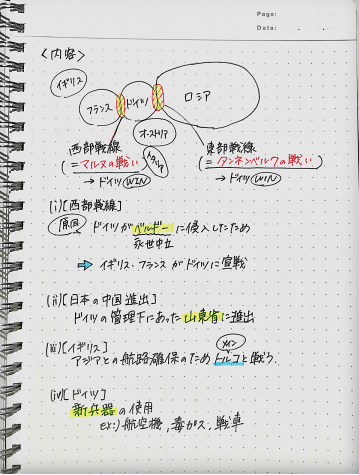 Page:
Date:
〈内容〉
イギリス
フランス
ドイツ
ロシア
オーストリア
西部戦線
(=マルヌの戦い)
→ドイツWIN
東部戦線
(=タンネンベルクの戦い)
→ドイツWIN
(i)[西部戦線]
原因 ドイツがベルギーに侵入したため
永世中立
⇒ イギリス・フランスがドイツに宣戦
(ii)[日本の中国進出]
ドイツの管理下にあった山東省に進出
(iii)[イギリス]
メイン
アジアとの航路確保のためトルコと戦う.
(iv)[ドイツ]
新兵器の使用
ex:)航空機,毒ガス,戦車